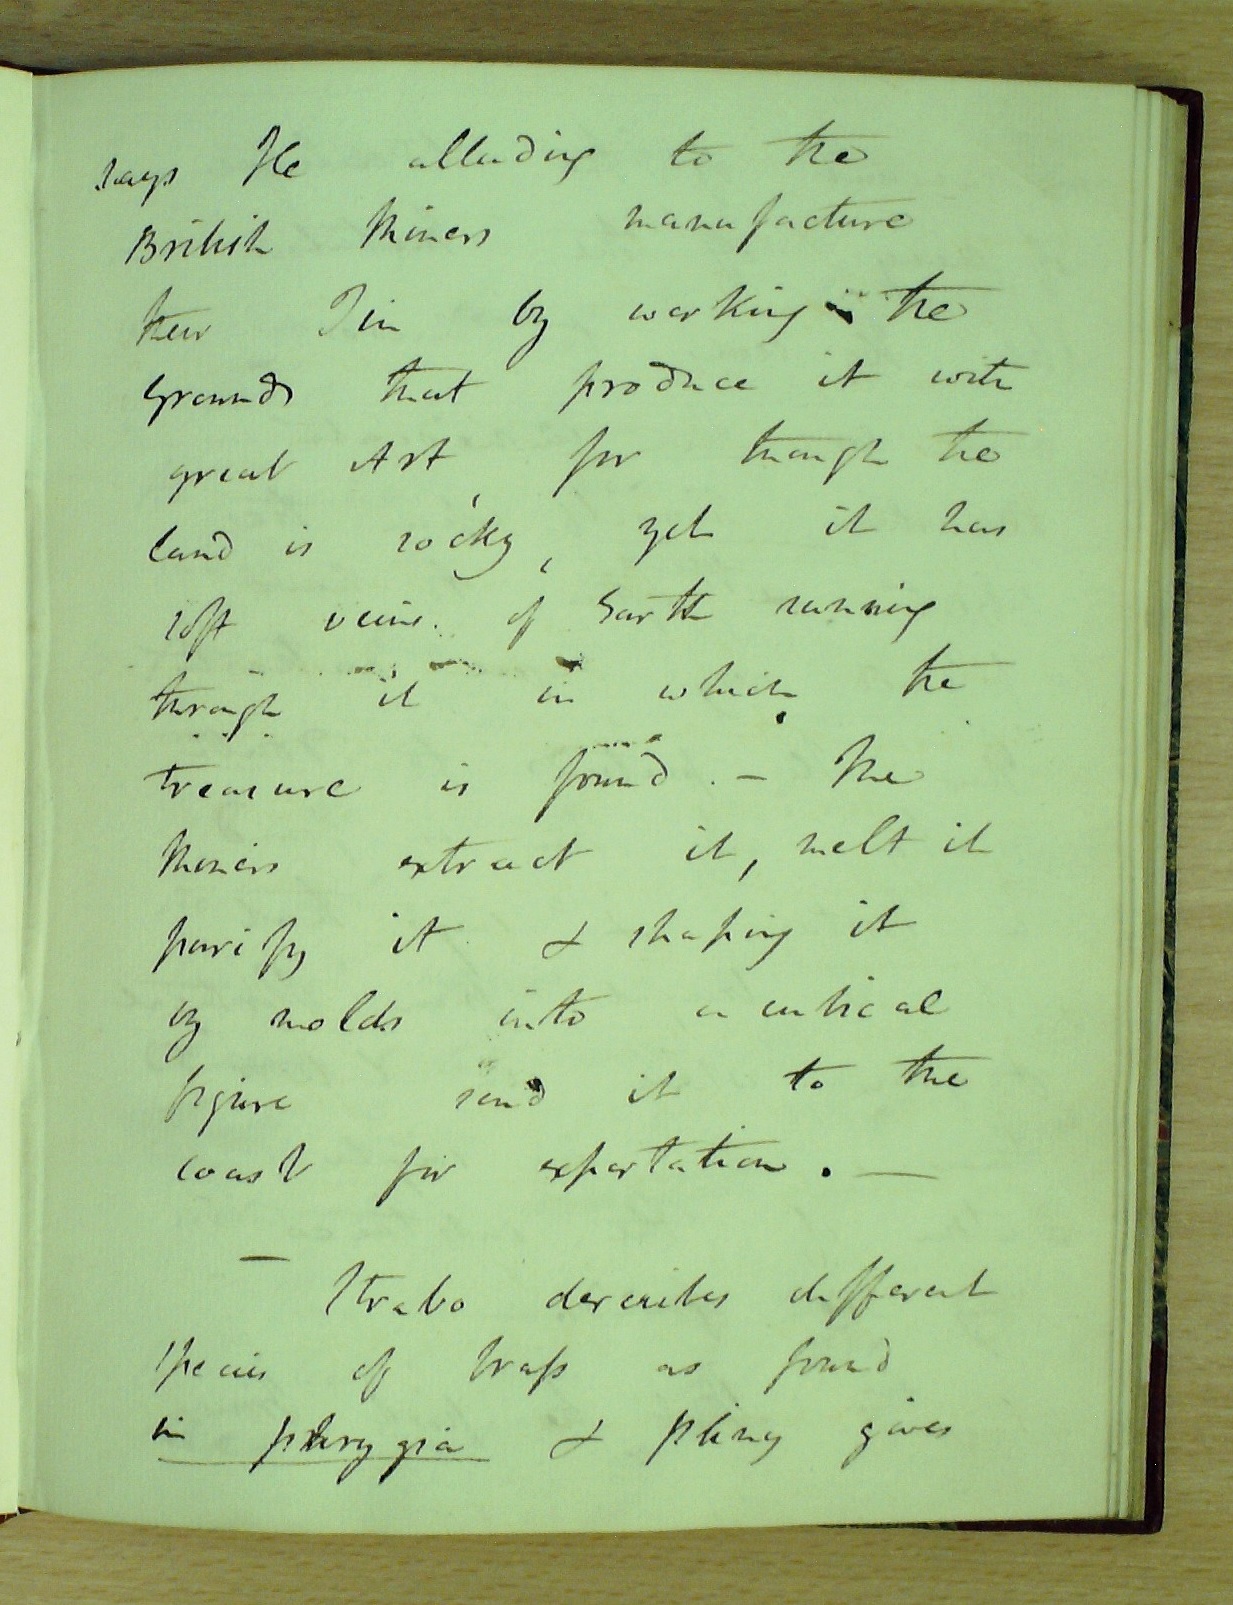 says He alluding to the
British Miners manufacture
their Tin by working the
grounds that produce it with
great Art, for though the
land is rocky, yet it has
soft veins. of Earth running
through it in which the
treasure is found. - The
Miners extract it, melt it
purify it & shaping it
by molds into a cubical
figure send it to the
coast for exportation. —
— Strabo describes different
species of brass as found
in phrygia & pliny gives